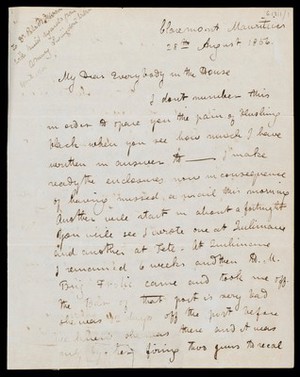 Claremont Mauritius
28th August 1856
My Dear Everybody in the House
I don't number this
in order to spare you the pain of blushing
black when you see how much I have
written in answer to — I make
ready the enclosures now in consequence
of having missed a mail this morning
Another will start in about a fortnight
You will see I wrote one at Quilimane
and another at Tete. At Quilimane
I remained 6 weeks and then H. M.
Brig Frolic came and took me off
the Bar of that port is very bad
she was off the port before
there and it was
only by firing two guns to recal